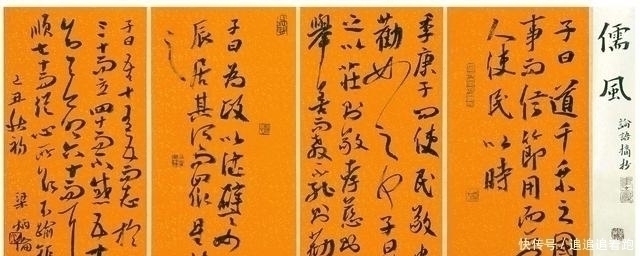 儒風
論語摘抄
子曰道千乘之國
事而信節用而
人使民以時
季康子问使民敬忠
勸如之何子曰
之以莊則敬孝慈則
舉善而教不能則勸
子曰為政以德譬如
辰居其所而眾星共
之
子曰吾十有五而志於
三十而立四十而不惑五十
知天命六十而耳
順七十而從心所欲不踰矩
乙丑秋
快传号／追追追着跑